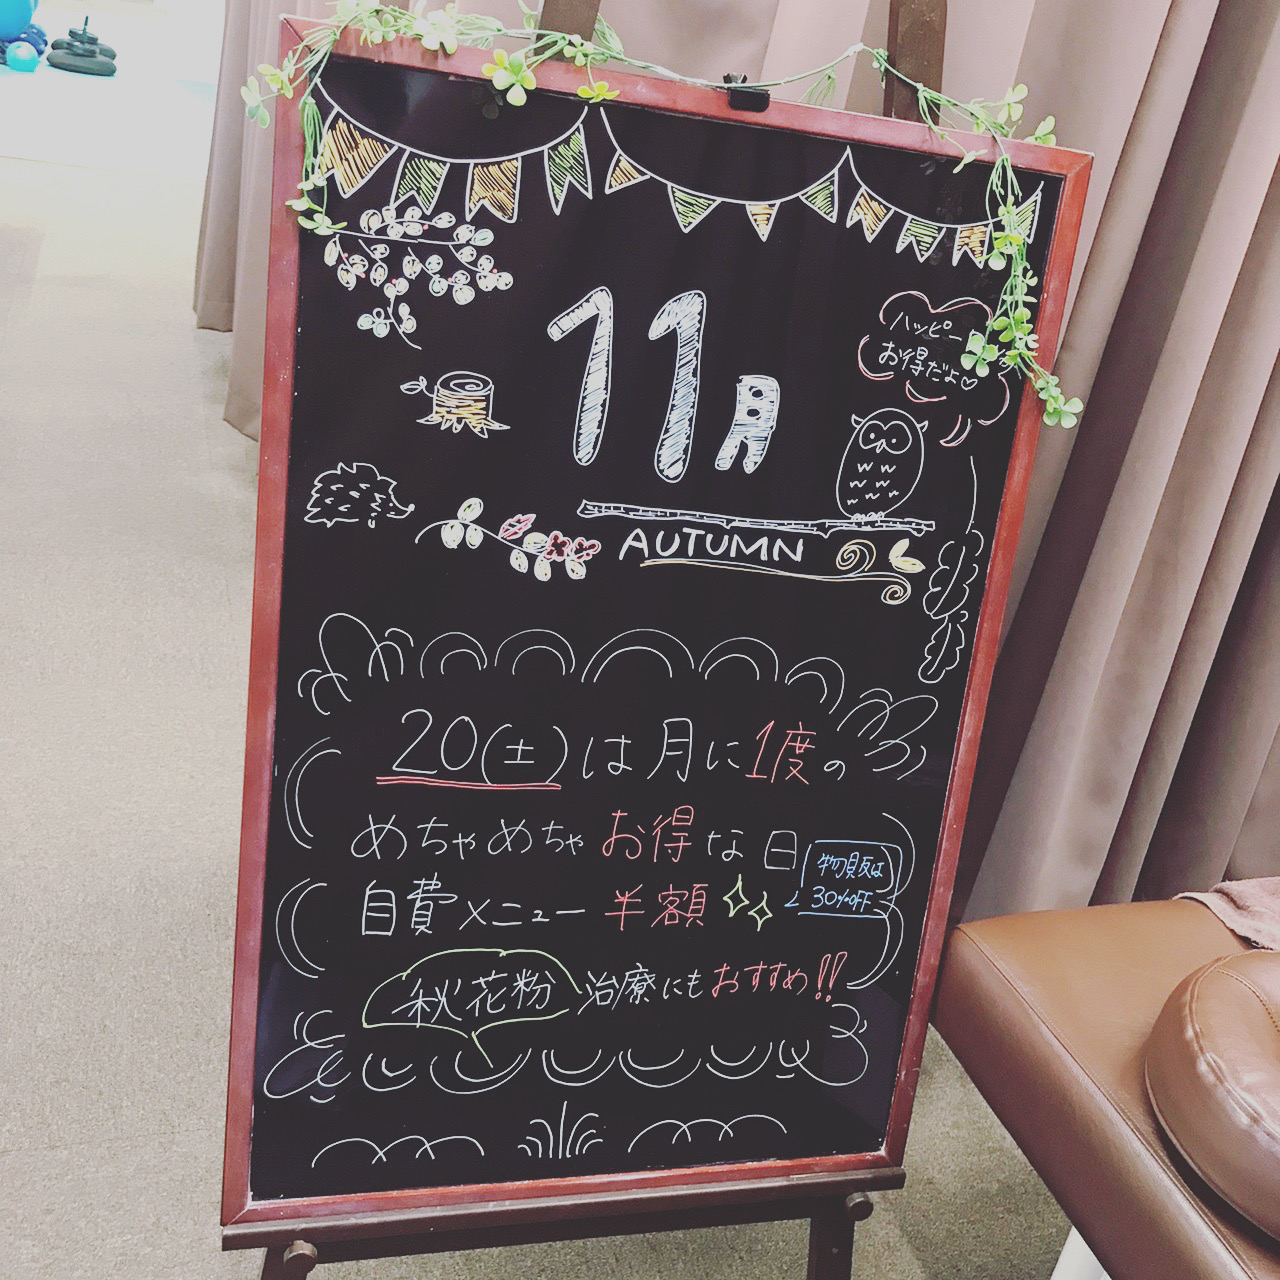 11月
ハッピー
お得だよ♡
AUTUMN
20(土)は月に1度の
めちゃめちゃお得な日
物販は
30%OFF
自費メニュー半額
秋花粉治療にもおすすめ!!